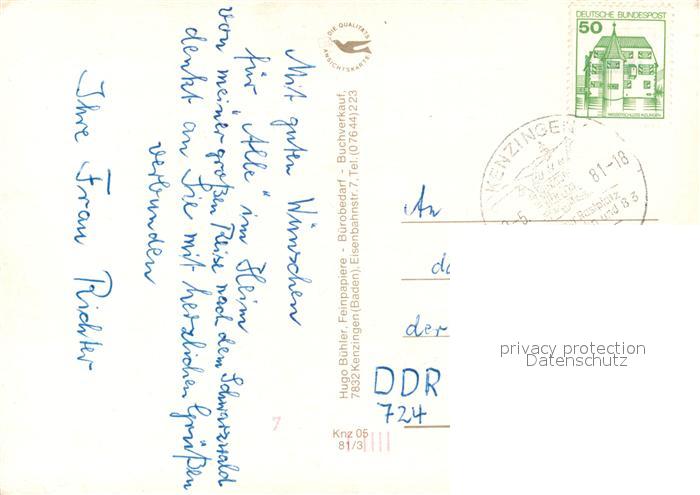 Mit guten Wünschen
für „Alle“ im Heim
von meiner großen Reise nach dem Schwarzwald
denkt an Sie mit herzlichen Grüßen
verbunden
Ihre Frau Richter
DIE QUALITÄTS
ANSICHTSKARTE
Hugo Bühler, Feinpapiere - Bürobedarf - Buchverkauf,
7832 Kenzingen (Baden), Eisenbahnstr. 7, Tel. (07644) 223
Knz 05
81/3
7
DEUTSCHE BUNDESPOST
50
WASSERSCHLOSS INZLINGEN
KENZINGEN
81-18
An
der
DDR
724
privacy protection
Datenschutz